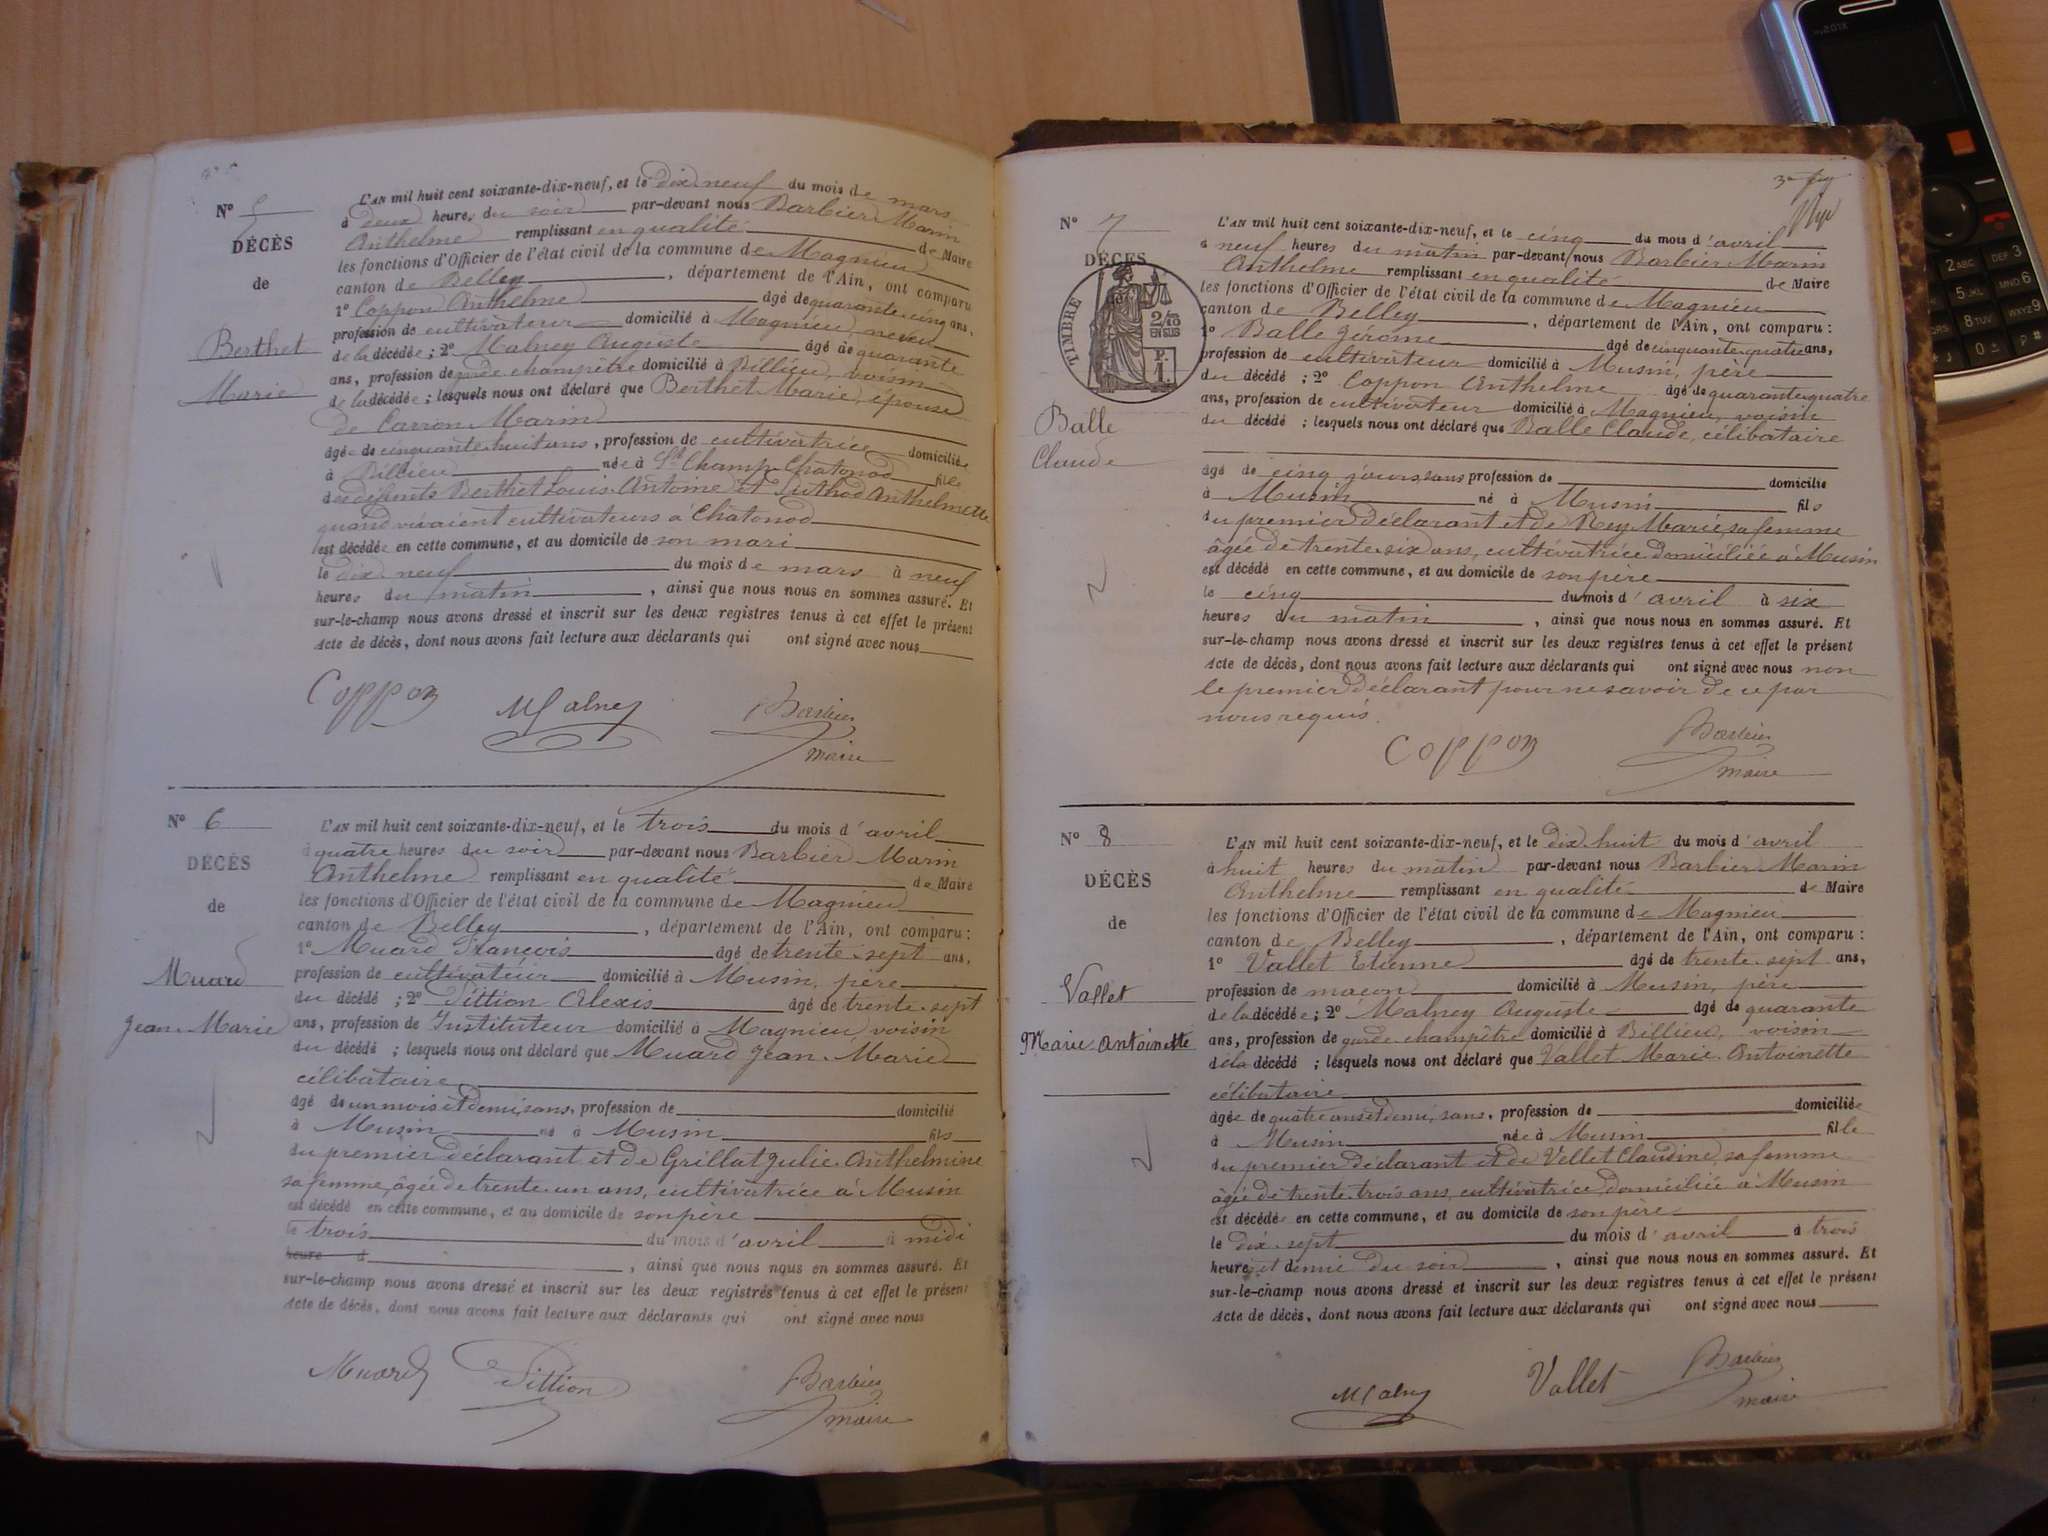 N° 5
DÉCÈS
de
Berthet
Marie
L'AN mil huit cent soixante-dix-neuf, et le dix-neuf du mois de mars
à deux heures du soir par-devant nous Barbier Marin
Anthelme remplissant en qualité de Maire
les fonctions d'Officier de l'état civil de la commune de Magnieu
canton de Belley, département de l'Ain, ont comparu
1° Coppon Anthelme âgé de quarante cinq ans,
profession de cultivateur domicilié à Magnieu neveu
de la décédée ; 2° Malney Auguste âgé de quarante
ans, profession de garde champêtre domicilié à Billieu, voisin
de la décédée ; lesquels nous ont déclaré que Berthet Marie, épouse
de Carron Marin
âgée de cinquante huit ans, profession de cultivatrice domiciliée
à Billieu née à St Champ-Chatonod fille
des défunts Berthet Louis Antoine et Suthod Anthelmette
quand vivaient cultivateurs à Chatonod
est décédée en cette commune, et au domicile de son mari
le dix-neuf du mois de mars à neuf
heures du matin, ainsi que nous nous en sommes assuré. Et
sur-le-champ nous avons dressé et inscrit sur les deux registres tenus à cet effet le présent
Acte de décès, dont nous avons fait lecture aux déclarants qui ont signé avec nous
Coppon Malney Barbier
maire
N° 6
DÉCÈS
de
Muard
Jean-Marie
L'AN mil huit cent soixante-dix-neuf, et le trois du mois d'avril
à quatre heures du soir par-devant nous Barbier Marin
Anthelme remplissant en qualité de Maire
les fonctions d'Officier de l'état civil de la commune de Magnieu
canton de Belley, département de l'Ain, ont comparu :
1° Muard François âgé de trente-sept ans,
profession de cultivateur domicilié à Musin, père
du décédé ; 2° Pittion Alexis âgé de trente-sept
ans, profession de Instituteur domicilié à Magnieu voisin
du décédé ; lesquels nous ont déclaré que Muard Jean-Marie
célibataire
âgé de un mois et demi, sans, profession de domicilié
à Musin né à Musin fils
du premier déclarant et de Grillat Julie Anthelmine
sa femme, âgée de trente-un ans, cultivatrice à Musin
est décédé en cette commune, et au domicile de son père
le trois du mois d'avril à midi
heure d, ainsi que nous nous en sommes assuré. Et
sur-le-champ nous avons dressé et inscrit sur les deux registres tenus à cet effet le présent
Acte de décès, dont nous avons fait lecture aux déclarants qui ont signé avec nous
Muard Pittion Barbier
maire
N° 7
DÉCÈS
TIMBRE
2/10
EN SUS
P.
1.
Balle
Claude
L'AN mil huit cent soixante-dix-neuf, et le cinq du mois d'avril
à neuf heures du matin par-devant nous Barbier Marin
Anthelme remplissant en qualité de Maire
les fonctions d'Officier de l'état civil de la commune de Magnieu
canton de Belley, département de l'Ain, ont comparu :
1° Balle Jérôme âgé de cinquante quatre ans,
profession de cultivateur domicilié à Musin, père
du décédé ; 2° Coppon Anthelme âgé de quarante quatre
ans, profession de cultivateur domicilié à Magnieu, voisin
du décédé ; lesquels nous ont déclaré que Balle Claude, célibataire
âgé de cinq jours, sans profession de domicilié
à Musin né à Musin fils
du premier déclarant et de Rey Marie, sa femme
âgée de trente-six ans, cultivatrice domiciliée à Musin
est décédé en cette commune, et au domicile de son père
le cinq du mois d'avril à six
heures du matin, ainsi que nous nous en sommes assuré. Et
sur-le-champ nous avons dressé et inscrit sur les deux registres tenus à cet effet le présent
Acte de décès, dont nous avons fait lecture aux déclarants qui ont signé avec nous non
le premier déclarant pour ne savoir de ce par
nous requis.
Coppon Barbier
maire
N° 8
DÉCÈS
de
Vallet
Marie-Antoinette
L'AN mil huit cent soixante-dix-neuf, et le dix-huit du mois d'avril
à huit heures du matin par-devant nous Barbier Marin
Anthelme remplissant en qualité de Maire
les fonctions d'Officier de l'état civil de la commune de Magnieu
canton de Belley, département de l'Ain, ont comparu :
1° Vallet Etienne âgé de trente-sept ans,
profession de maçon domicilié à Musin, père
de la décédée ; 2° Malney Auguste âgé de quarante
ans, profession de garde-champêtre domicilié à Billieu, voisin
de la décédé ; lesquels nous ont déclaré que Vallet Marie-Antoinette
célibataire
âgée de quatre ans et demi, sans, profession de domiciliée
à Musin née à Musin fille
du premier déclarant et de Vellet Claudine, sa femme
âgée de trente-trois ans, cultivatrice, domiciliée à Musin
est décédée en cette commune, et au domicile de son père
le dix-sept du mois d'avril à trois
heures et demie du soir, ainsi que nous nous en sommes assuré. Et
sur-le-champ nous avons dressé et inscrit sur les deux registres tenus à cet effet le présent
Acte de décès, dont nous avons fait lecture aux déclarants qui ont signé avec nous
Malney Vallet Barbier
maire